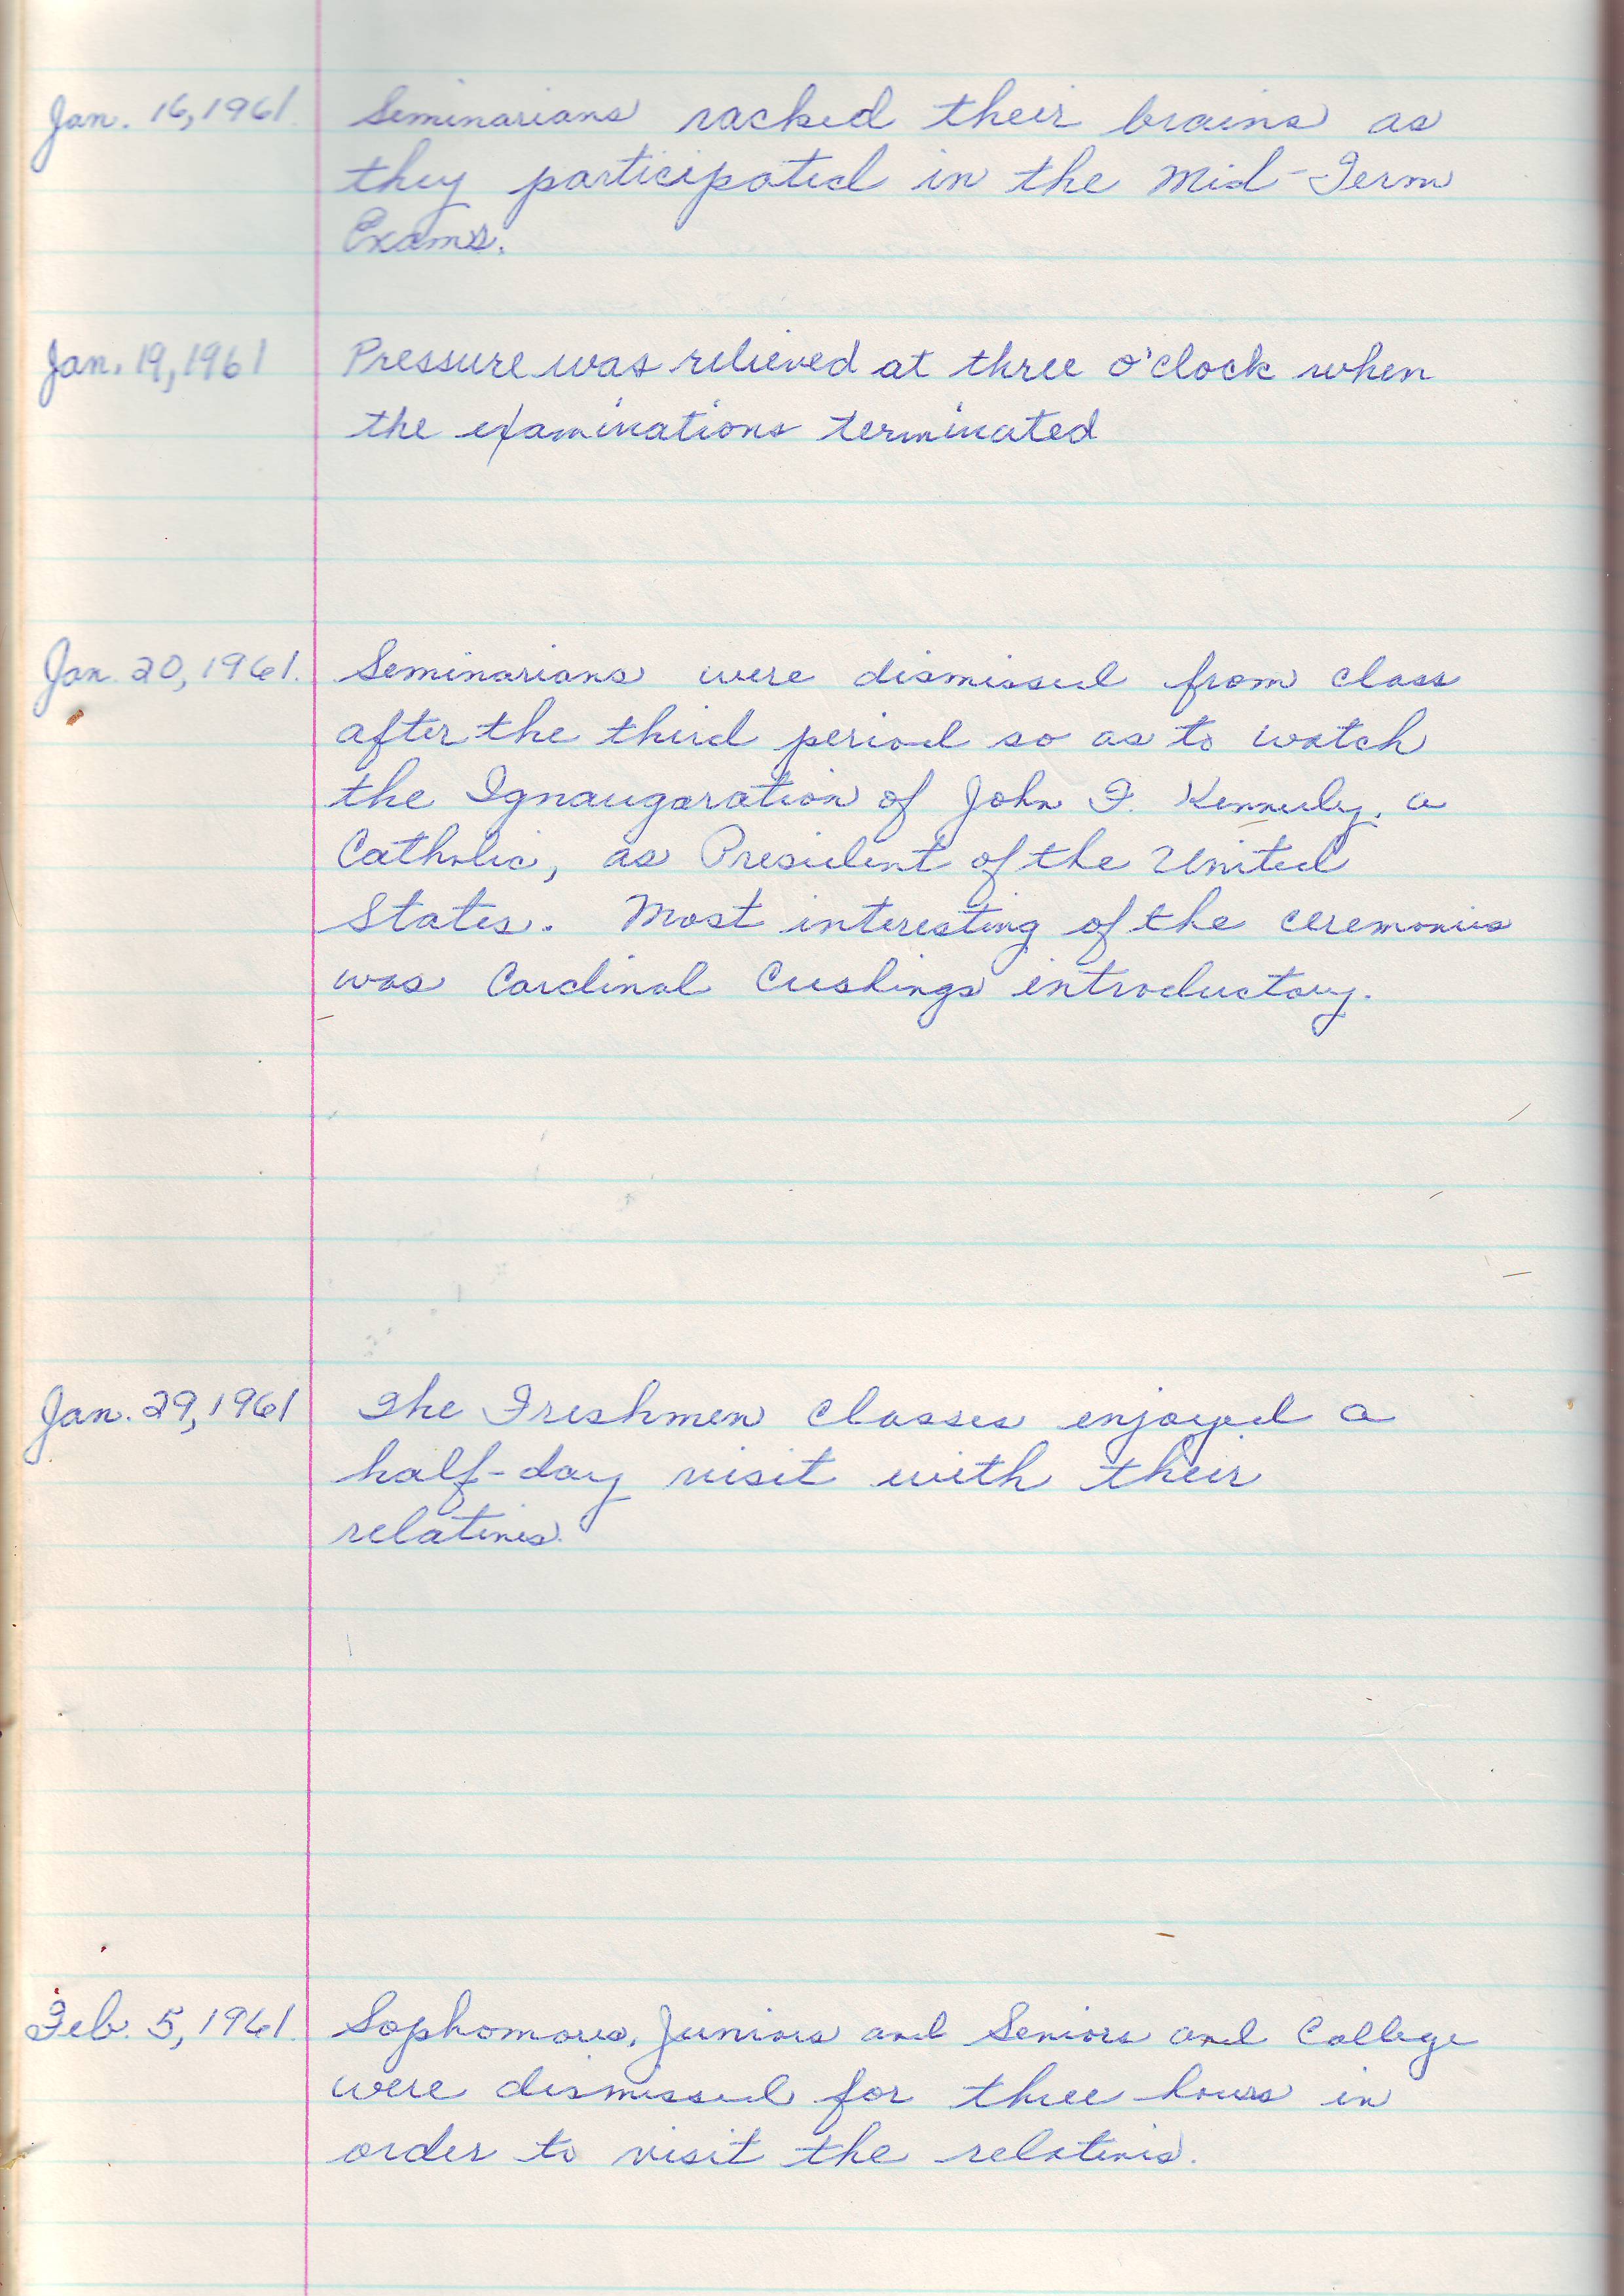 Jan. 16, 1961. Seminarians racked their brains as
they participated in the Mid-Term
Exams.
Jan. 19, 1961 Pressure was relieved at three o'clock when
the examinations terminated
Jan. 20, 1961. Seminarians were dismissed from class
after the third period so as to watch
the Ignaugaration of John F. Kennedy, a
Catholic, as President of the United
States. Most interesting of the ceremonies
was Cardinal Cushings introductory.
Jan. 29, 1961 The Freshmen Classes enjoyed a
half-day visit with their
relatives.
Feb. 5, 1961. Sophomores, Juniors and Seniors and College
were dismissed for three hours in
order to visit the relatives.